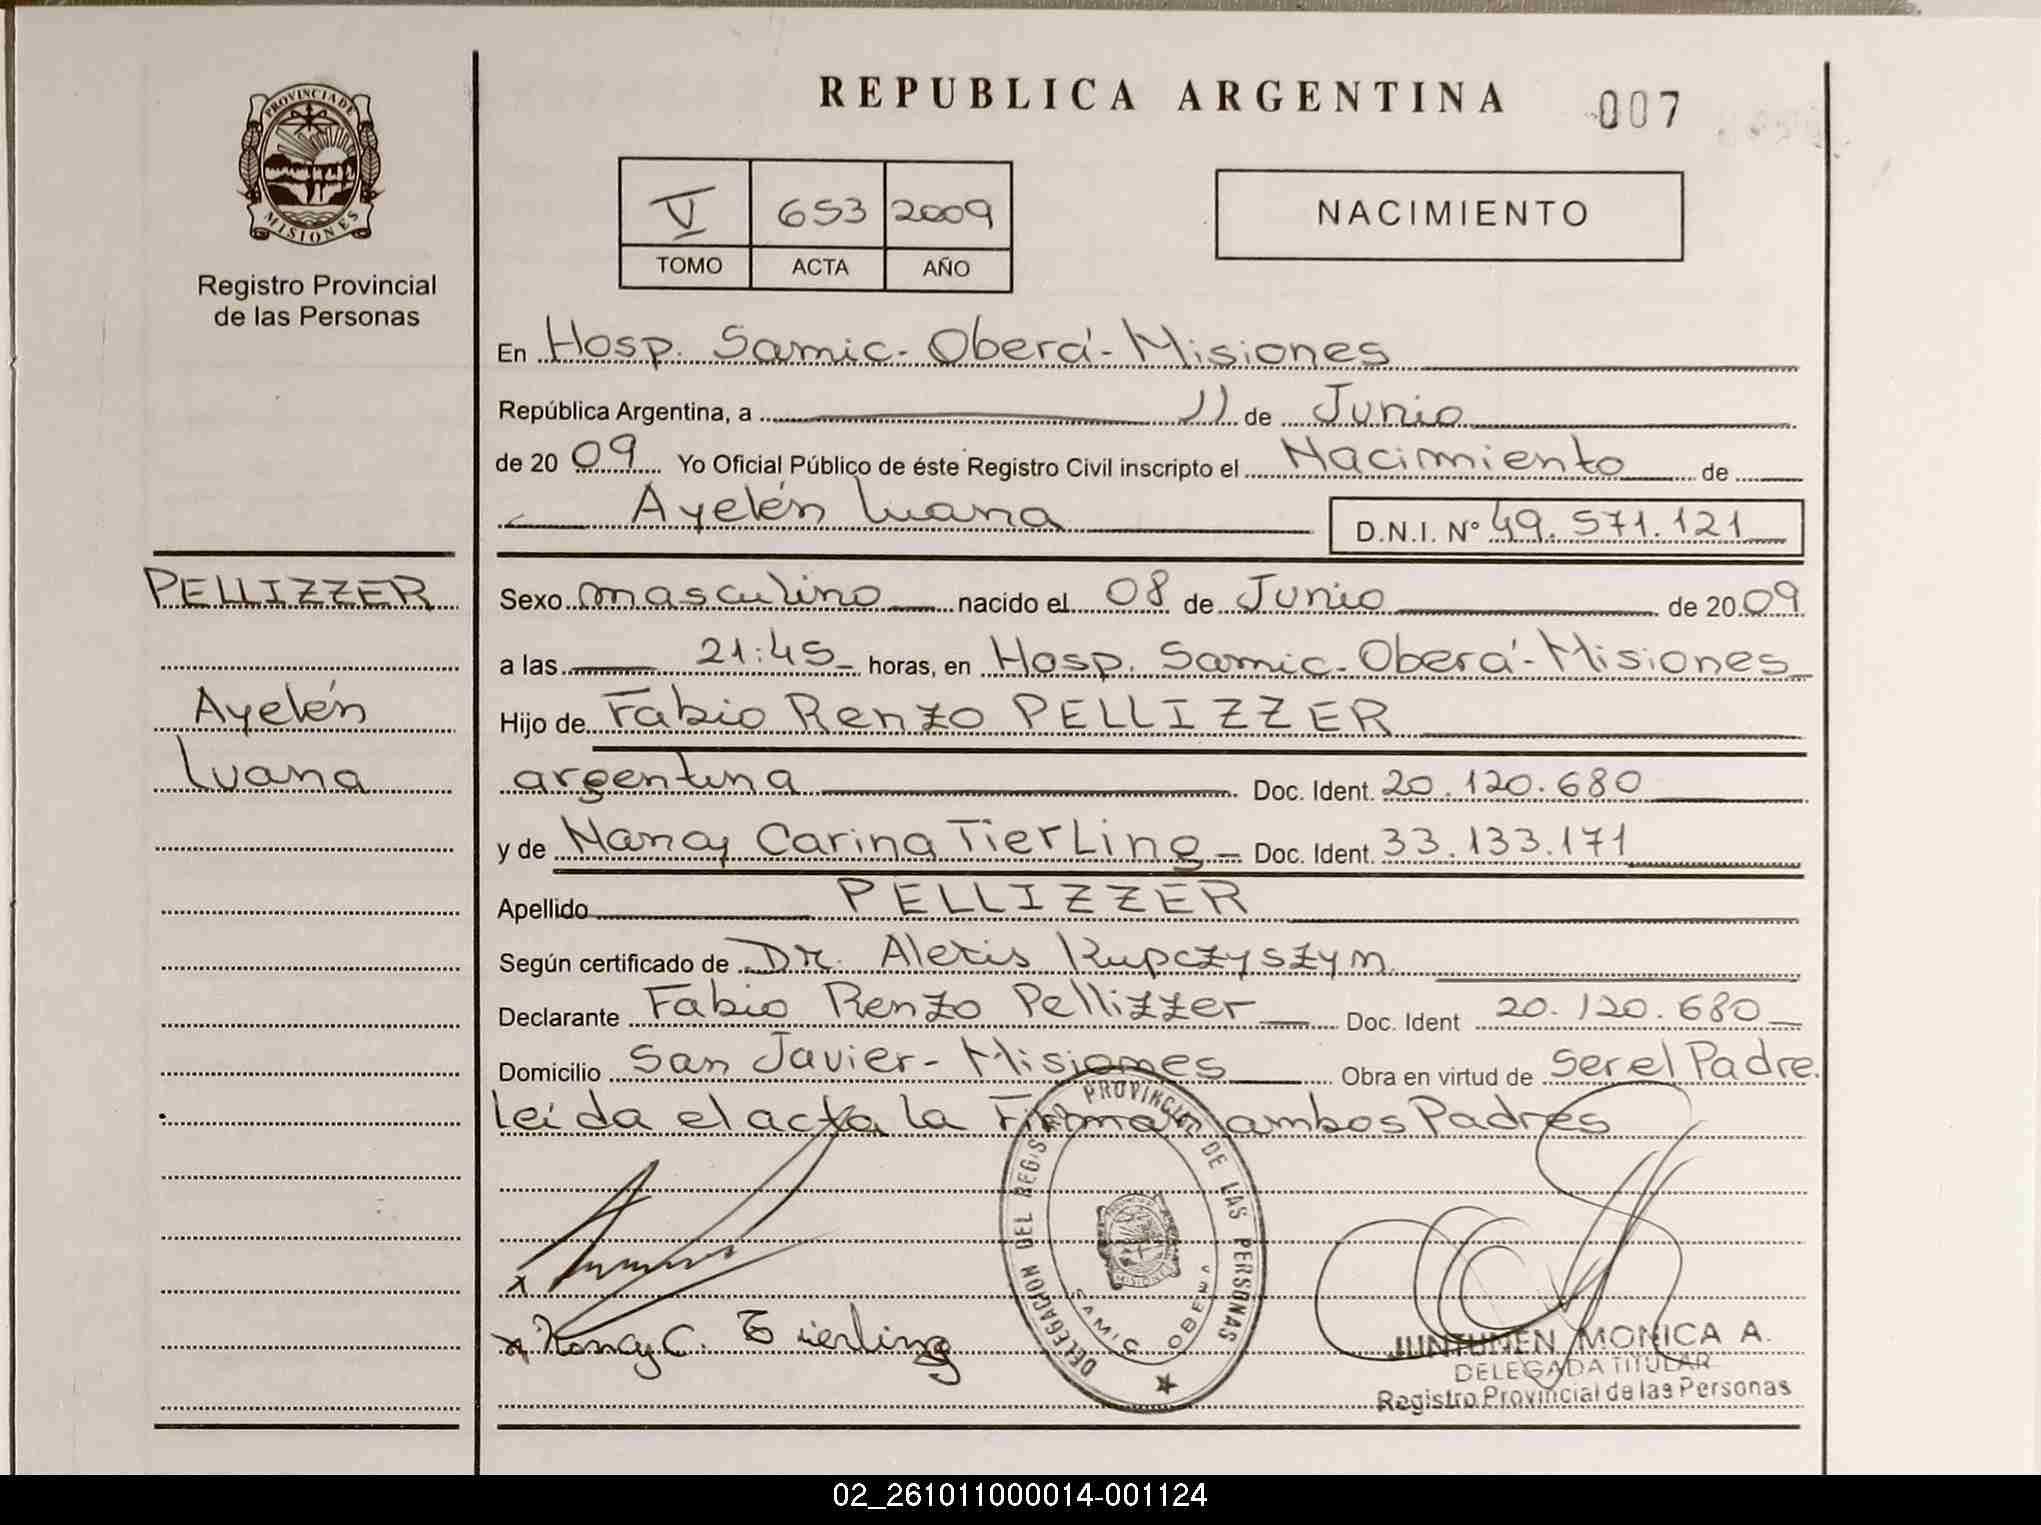 PROVINCIA DE
MISIONES
Registro Provincial
de las Personas
REPUBLICA ARGENTINA 007
V 653 2009
TOMO ACTA AÑO
NACIMIENTO
En Hosp. Samic - Oberá - Misiones
República Argentina, a 11 de Junio
de 2009 Yo Oficial Público de éste Registro Civil inscripto el Nacimiento de
Ayelén Luana D.N.I. Nº 49.571.121
PELLIZZER
Ayelén
Luana
Sexo masculino nacido el 08 de Junio de 2009
a las 21:45 horas, en Hosp. Samic - Oberá - Misiones
Hijo de Fabio Renzo PELLIZZER
argentina Doc. Ident. 20.120.680
y de Nancy Carina Tierling - Doc. Ident. 33.133.171
Apellido PELLIZZER
Según certificado de Dr. Alexis Kupczyszyn
Declarante Fabio Renzo Pellizzer Doc. Ident 20.120.680
Domicilio San Javier - Misiones Obra en virtud de Ser el Padre.
Leída el acta la Firman ambos Padres
x
x Nancy C. Tierling
DELEGACION DEL REGISTRO PROVINCIAL DE LAS PERSONAS
MISIONES
SAMIC OBERA
JUNTUNEN MONICA A.
DELEGADA TITULAR
Registro Provincial de las Personas
02_261011000014-001124